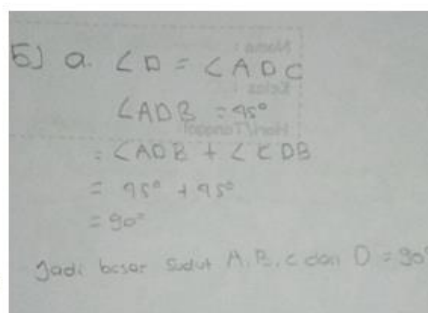 5) a. ∠D = ∠ADC
∠ADB = 45°
= ∠ADB + ∠CDB
= 45° + 45°
= 90°
Jadi besar sudut A, B, C dan D = 90°